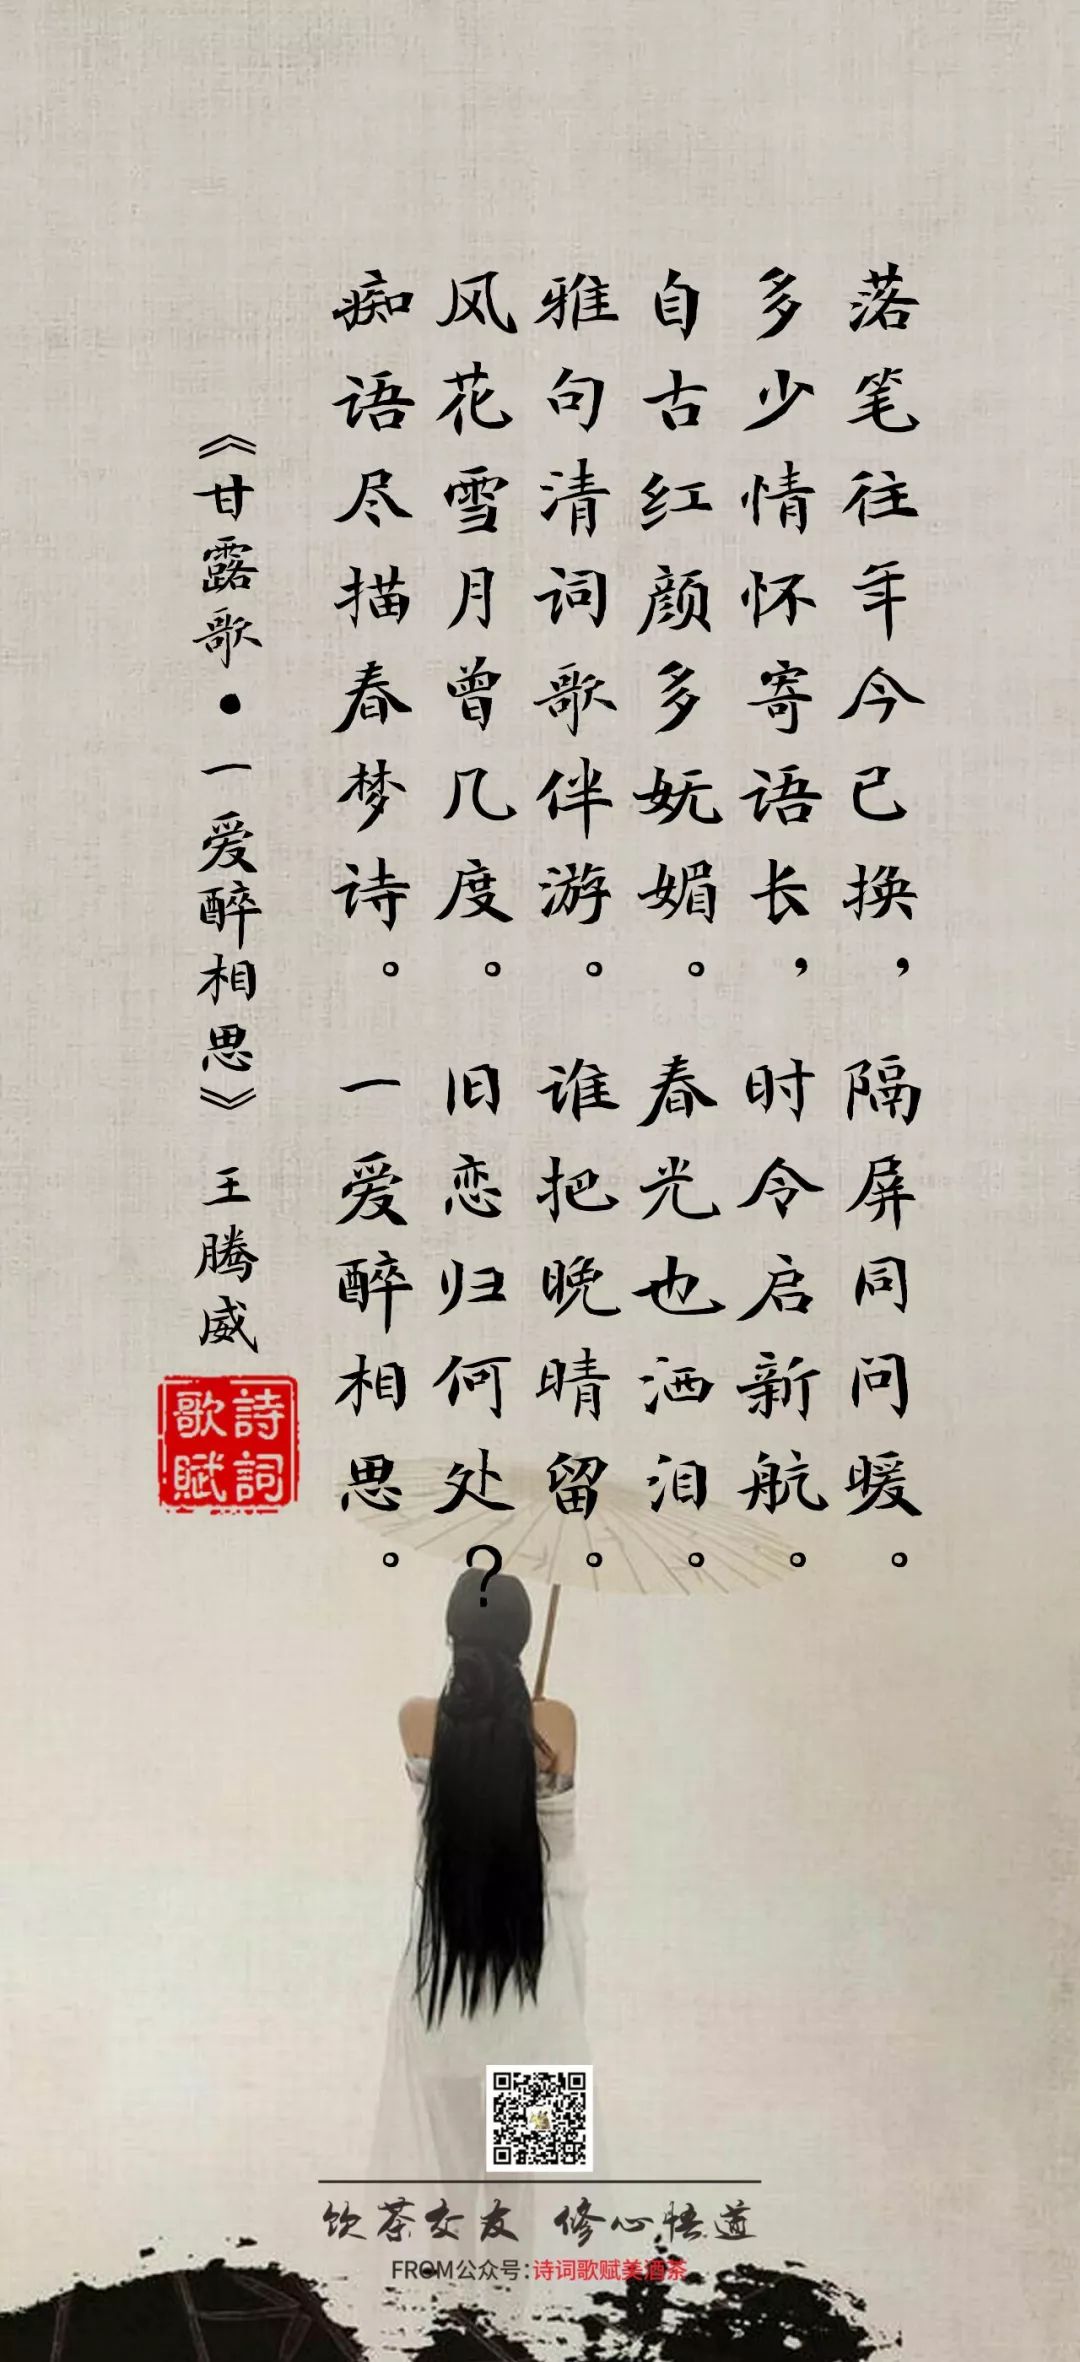 落笔往年今已换，隔屏同问暖。
多少情怀寄语长，时令启新航。
自古红颜多妩媚。春光也洒泪。
雅句清词歌伴游。谁把晚晴留。
风花雪月曾几度。旧恋归何处？
痴语尽描春梦诗。一爱醉相思。
《甘露歌·一爱醉相思》 王腾威
詩詞歌賦
饮茶交友 修心悟道
FROM公众号:诗词歌赋美酒茶